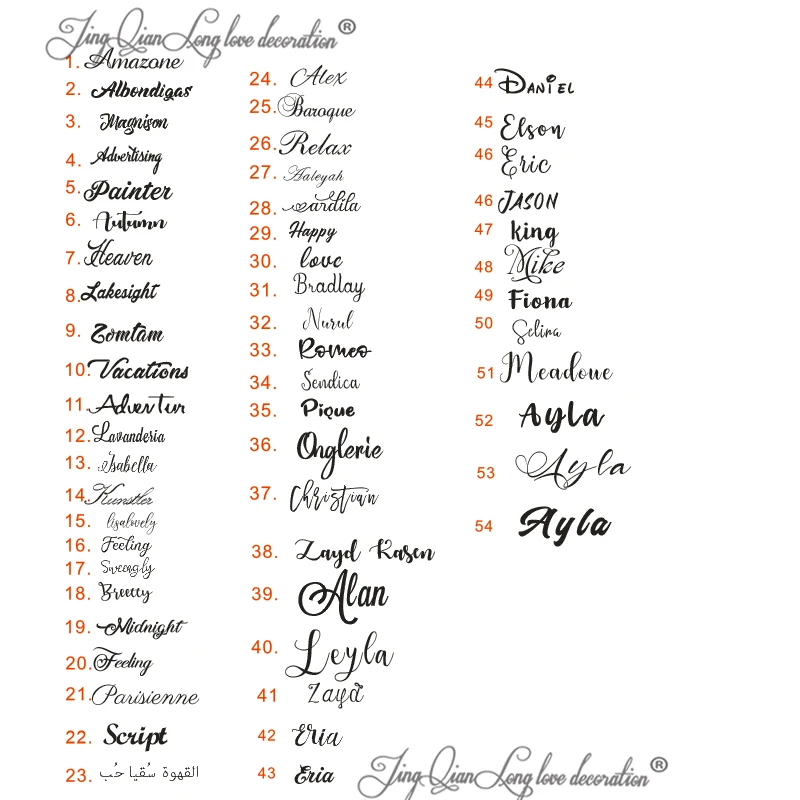 Jing Qian Long love decoration®
1. Amazone
2. Albondigas
3. Magnison
4. Advertising
5. Painter
6. Autumn
7. Heaven
8. Lakesight
9. Zomtam
10. Vacations
11. Adventur
12. Lavanderia
13. Isabella
14. Kunstler
15. lisalovely
16. Feeling
17. Sweengly
18. Breetty
19. Midnight
20. Feeling
21. Parisienne
22. Script
23. القهوة سُقيا حُب
24. Alex
25. Baroque
26. Relax
27. Aaleyah
28. Sardila
29. Happy
30. love
31. Bradlay
32. Nurul
33. Romeo
34. Sendica
35. Pique
36. Onglerie
37. Christian
38. Zayd Kasen
39. Alan
40. Leyla
41 Zaya
42 Eria
43 Eria
44 DANIEL
45 Elson
46 Eric
46 JASON
47 king
48 Mike
49 Fiona
50 Selina
51 Meadowe
52 Ayla
53 Ayla
54 Ayla
Jing Qian Long love decoration®